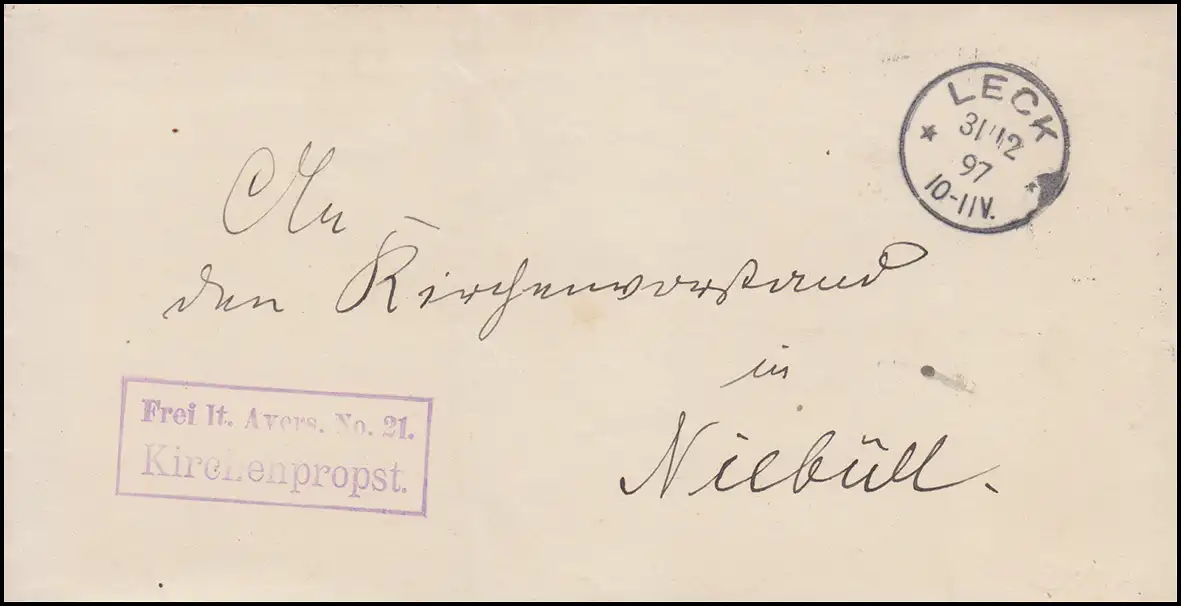 LECK
31/12
97
10-11V.
An
den Kirchenvorstand
in
Niebüll.
Frei lt. Avers. No. 21.
Kirchenpropst.